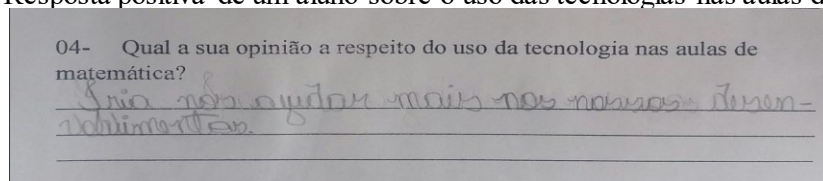 Resposta positiva de um aluno sobre o uso das tecnologias nas aulas d
04- Qual a sua opinião a respeito do uso da tecnologia nas aulas de
matemática?
Iria nós ajudar mais nos nossos desen-
volvimentos.